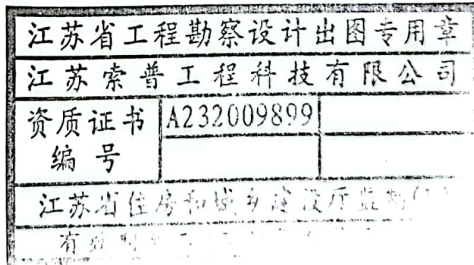 江苏省工程勘察设计出图专用章
江苏索普工程科技有限公司
资质证书
编号
A232009899
江苏省住房和城乡建设厅监制
有效期